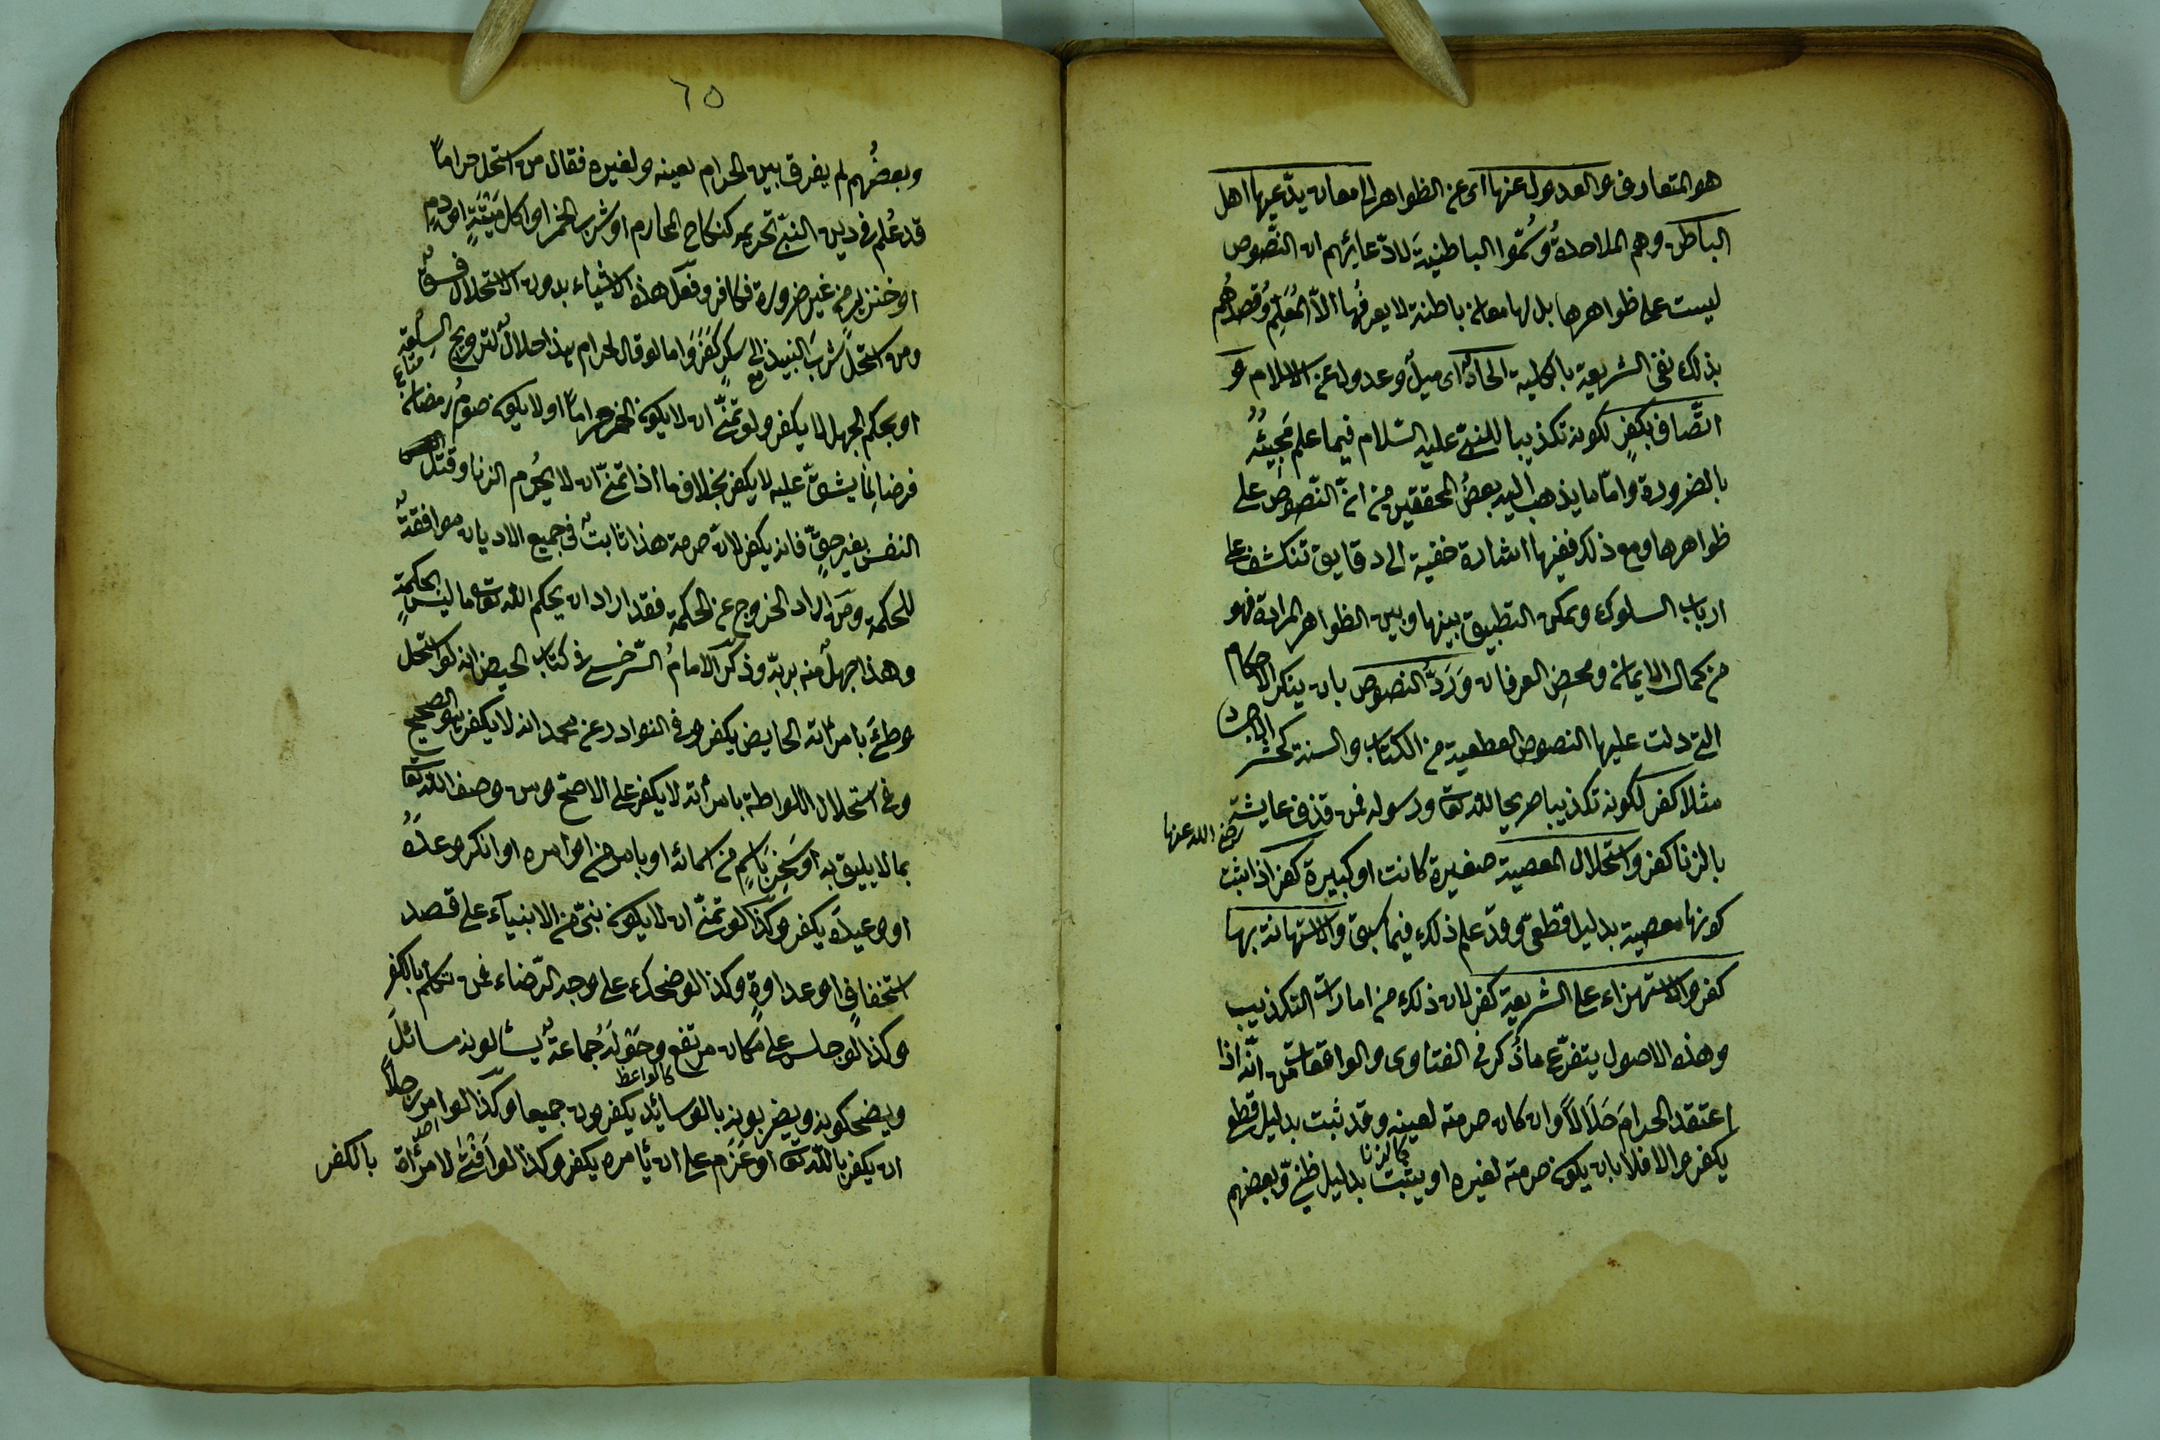 هو المتعارف والعدول عنها اى عن الظواهر الى معان يدّعيها اهل
الباطن وهم الملاحدةُ وسُمّوا الباطنيةَ لادّعائهم ان النّصوص
ليست على ظواهرها بل لها معان باطنة لا يعرفُها الّا المُعَلِّم وقصدُهم
بذلك نفى الشريعة بالكلية الحادٌ اى ميلٌ وعدول عن الاسلام و
اتّصاف بكفرٍ لكونه تكذيبا للنبىّ عليه السّلام فيما علم مَجِيئُهُ
بالضرورة وامّا ما يذهب اليه بعضُ المحققين من انّ النّصوص على
ظواهرها ومع ذلك ففيها اشارة خفية الى دقايق تنكشف على
ارباب السلوك ويمكن التطبيق بينها وبين الظواهر المرادة فهو
من كمال الايمان ومحضِ العرفان وَرَدُّ النصوص بان ينكر الاحكام
التى دلت عليها النصوص القطعية من الكتاب والسنة كحشر الاجساد
مثلا كفر لكونه تكذيبا صريحا لله تعا ورسوله فمن قذف عايشة رضى الله عنها
بالزنا كفر واستحلال المعصية صغيرة كانت او كبيرة كفر اذا ثبت
كونها معصية بدليل قطعىّ وقد علم ذلك فيما سبق والاستهانة بها
كفر والاستهزاء على الشريعة كفر لان ذلك من امارات التكذيب
وهذه الاصول يتفرّع ما ذُكر فى الفتاوى والواقعات من انّه اذا
اعتقد الحرامَ حَلَالًا وان كان حرمته لعينه وقد ثبت بدليل قطعى
كالزنا
يكفر والا فلا بان يكون حرمته لغيره او يثبت بدليل ظنىّ وبعضهم
٦٥
وبعضُهم لم يفرق بين الحرام لعينه ولغيره فقال من استحل حراماً
قد عُلم فى دين النبىّ تحريمه كنكاح المحارم او شرب الخمر او اكل مَيْتَةٍ او دمٍ
او خنزير من غير ضرورة فكافر وفعل هذه الاشياء بدون الاستحلال فسقٌ
ومن استحلّ شربَ النبيذ الى سكرٍ كَفَرَ واما لو قال لحرام هذا حلالٌ لترويج السِلْعَةِ
متاع
او بحكم الجهل لا يكفر ولو تمنّى ان لا يكون الخمر حراماً او لا يكون صومُ رمضان
فرضا لِمَا يشقّ عليه لا يكفر بخلاف ما اذا تمنّى ان لا يحُرم الزنا وقتلُ النفس
النفس بغير حقٍّ فانه يكفر لان حرمة هذا ثابتٌ فى جميع الاديان موافقةٌ
للحكمة ومَن اراد الخروج عن الحكمة فقد اراد ان يحكم الله تعا ما ليس بحكمةٍ
وهذا جهلٌ منه بربّه وذكرَ الامامُ السّرخسى فى كتاب الحيض انه لو استحل
وطئَ بامرأته الحايض يكفر وفى النوادر عن محمد انه لا يكفر هو الصحيح
وفى استحلال اللواطة بامرأته لا يكفر على الاصحّ ومن وصف الله تعا
بما لا يليق به او سَخِرَ بِاسْمٍ من اسمائه او بامر من اوامره او انكر وعدَهُ
او وعيدَهُ يكفر وكَذَا لو تمنّى ان لا يكون نبىّ من الانبيآء على قصد
استخفافٍ او عداوةٍ وكذا لو ضحك على وجه الرّضاء فمن تكلّم بالكفر
وكذا لو جلس على مَكان مرتفع وحَوْلَهُ جماعةٌ يسألونه مسائلَ
كالواعظ
ويضحكونه ويضربونه بالوسائد يكفرون جميعا وكَذَا لو امر رجلاً
ان يكفر بالله تعا او عَزَم على ان يامره يكفر وكذا لو اَفْتَى لامرأة بالكفر